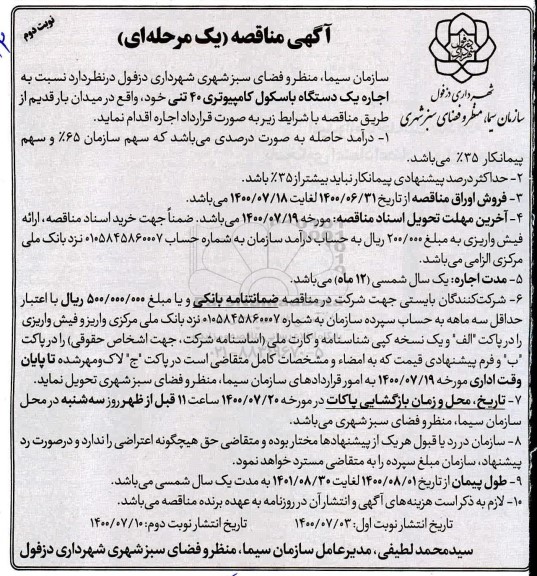 نوبت دوم
آگهی مناقصه (یک مرحله‌ای)
شهرداری دزفول
سازمان سیما، منظر و فضای سبز شهری
سازمان سیما، منظر و فضای سبز شهری شهرداری دزفول درنظر دارد نسبت به
اجاره یک دستگاه باسکول کامپیوتری ۴۰ تنی خود، واقع در میدان بار قدیم از
طریق مناقصه با شرایط زیر به صورت قرارداد اجاره اقدام نماید.
۱- درآمد حاصله به صورت درصدی می‌باشد که سهم سازمان ۶۵٪ و سهم
پیمانکار ۳۵٪ می‌باشد.
۲- حداکثر درصد پیشنهادی پیمانکار نباید بیشتر از ۳۵٪ باشد.
۳- فروش اوراق مناقصه از تاریخ ۱۴۰۰/۰۶/۳۱ لغایت ۱۴۰۰/۰۷/۱۸ می‌باشد.
۴- آخرین مهلت تحویل اسناد مناقصه: مورخه ۱۴۰۰/۰۷/۱۹ می‌باشد. ضمناً جهت خرید اسناد مناقصه، ارائه
فیش واریزی به مبلغ ۲۰۰/۰۰۰ ریال به حساب درآمد سازمان به شماره حساب ۰۱۰۵۸۴۵۸۶۰۰۰۷ نزد بانک ملی
مرکزی الزامی می‌باشد.
۵- مدت اجاره: یک سال شمسی (۱۲ ماه) می‌باشد.
۶- شرکت‌کنندگان بایستی جهت شرکت در مناقصه ضمانتنامه بانکی و یا مبلغ ۵۰۰/۰۰۰/۰۰۰ ریال با اعتبار
حداقل سه ماهه به حساب سپرده سازمان به شماره ۰۱۰۵۸۴۵۸۶۰۰۰۷ نزد بانک ملی مرکزی واریز و فیش واریزی
را در پاکت "الف" و یک نسخه کپی شناسنامه و کارت ملی (اساسنامه شرکت، جهت اشخاص حقوقی) را در پاکت
"ب" و فرم پیشنهادی قیمت که به امضاء و مشخصات کامل متقاضی است در پاکت "ج" لاک و مهر شده تا پایان
وقت اداری مورخه ۱۴۰۰/۰۷/۱۹ به امور قراردادهای سازمان سیما، منظر و فضای سبز شهری تحویل نماید.
۷- تاریخ، محل و زمان بازگشایی پاکات در مورخه ۱۴۰۰/۰۷/۲۰ ساعت ۱۱ قبل از ظهر روز سه‌شنبه در محل
سازمان سیما، منظر و فضای سبز شهری می‌باشد.
۸- سازمان در رد یا قبول هر یک از پیشنهادها مختار بوده و متقاضی حق هیچگونه اعتراضی را ندارد و درصورت رد
پیشنهاد، سازمان مبلغ سپرده را به متقاضی مسترد خواهد نمود.
۹- طول پیمان از تاریخ ۱۴۰۰/۰۸/۰۱ لغایت ۱۴۰۱/۰۸/۳۰ به مدت یک سال شمسی می‌باشد.
۱۰- لازم به ذکر است هزینه‌های آگهی و انتشار آن در روزنامه به عهده برنده مناقصه می‌باشد.
تاریخ انتشار نوبت اول: ۱۴۰۰/۰۷/۰۳ تاریخ انتشار نوبت دوم: ۱۴۰۰/۰۷/۱۰
سیدمحمد لطیفی، مدیرعامل سازمان سیما، منظر و فضای سبز شهری شهرداری دزفول